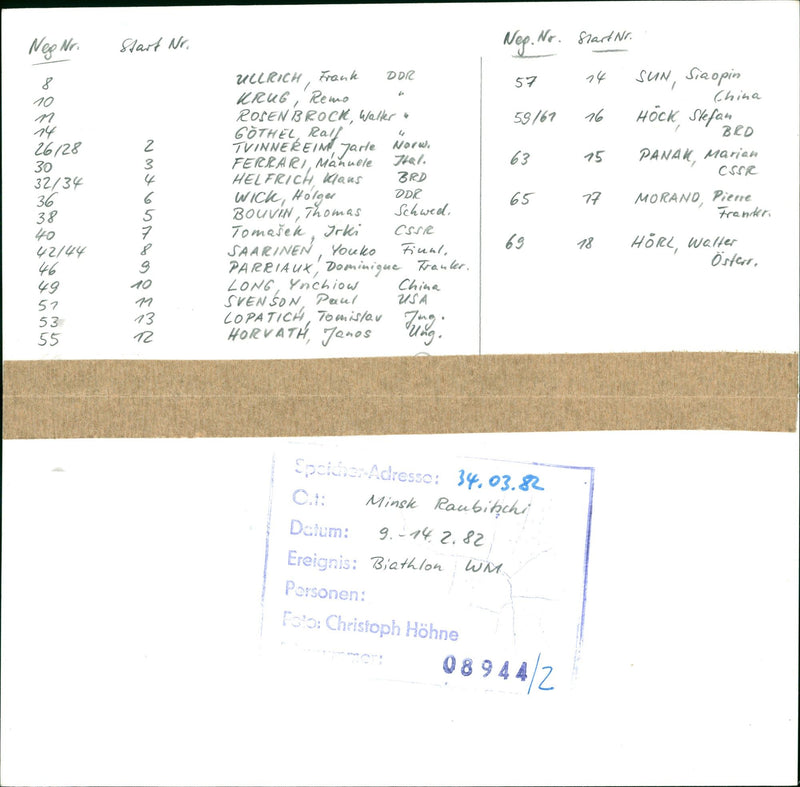 Neg Nr. Start Nr.
8 ULLRICH, Frank DDR
10 KRUG, Remo "
11 ROSENBROCK, Walter "
14 GÖTHEL, Ralf "
26/28 2 TVINNEREIM, Jarle Norw.
30 3 FERRARI, Manuele Ital.
32/34 4 HELFRICH, Klaus BRD
36 6 WICK, Holger DDR
38 5 BOUVIN, Thomas Schwed.
40 7 Tomašek, Jrki CSSR
42/44 8 SAARINEN, Youko Finnl.
46 9 PARRIAUX, Dominique Frankr.
49 10 LONG, Ynchiow China
51 11 SVENSON, Paul USA
53 13 LOPATICH, Tomislav Jug.
55 12 HORVATH, Janos Ung.
Neg. Nr. Start Nr.
57 14 SUN, Siaopin
China
59/61 16 HÖCK, Stefan
BRD
63 15 PANAK, Marian
CSSR
65 17 MORAND, Pierre
Frankr.
69 18 HÖRL, Walter
Österr.
Speicher-Adresse: 34.03.82
Ort: Minsk Raubitschi
Datum: 9.-14.2.82
Ereignis: Biathlon WM
Personen:
Foto: Christoph Höhne
08944/2